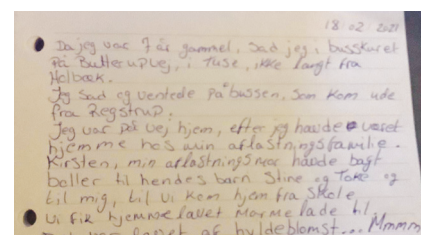 18.02 2021
Da jeg var 7 år gammel, sad jeg i busskuret
På Butterupvej, i Tuse, ikke langt fra
Holbæk.
Jeg sad og ventede på bussen, som kom ude
fra Regstrup.
Jeg var på vej hjem, efter jeg havde været
hjemme hos min aflastningsfamilie.
Kirsten, min aflastningsmor havde bagt
boller til hendes barn Stine og Toke og
til mig, til vi kom hjem fra skole.
Vi fik hjemmelavet Marmelade til,
lavet af hyldeblomst... Mmmm